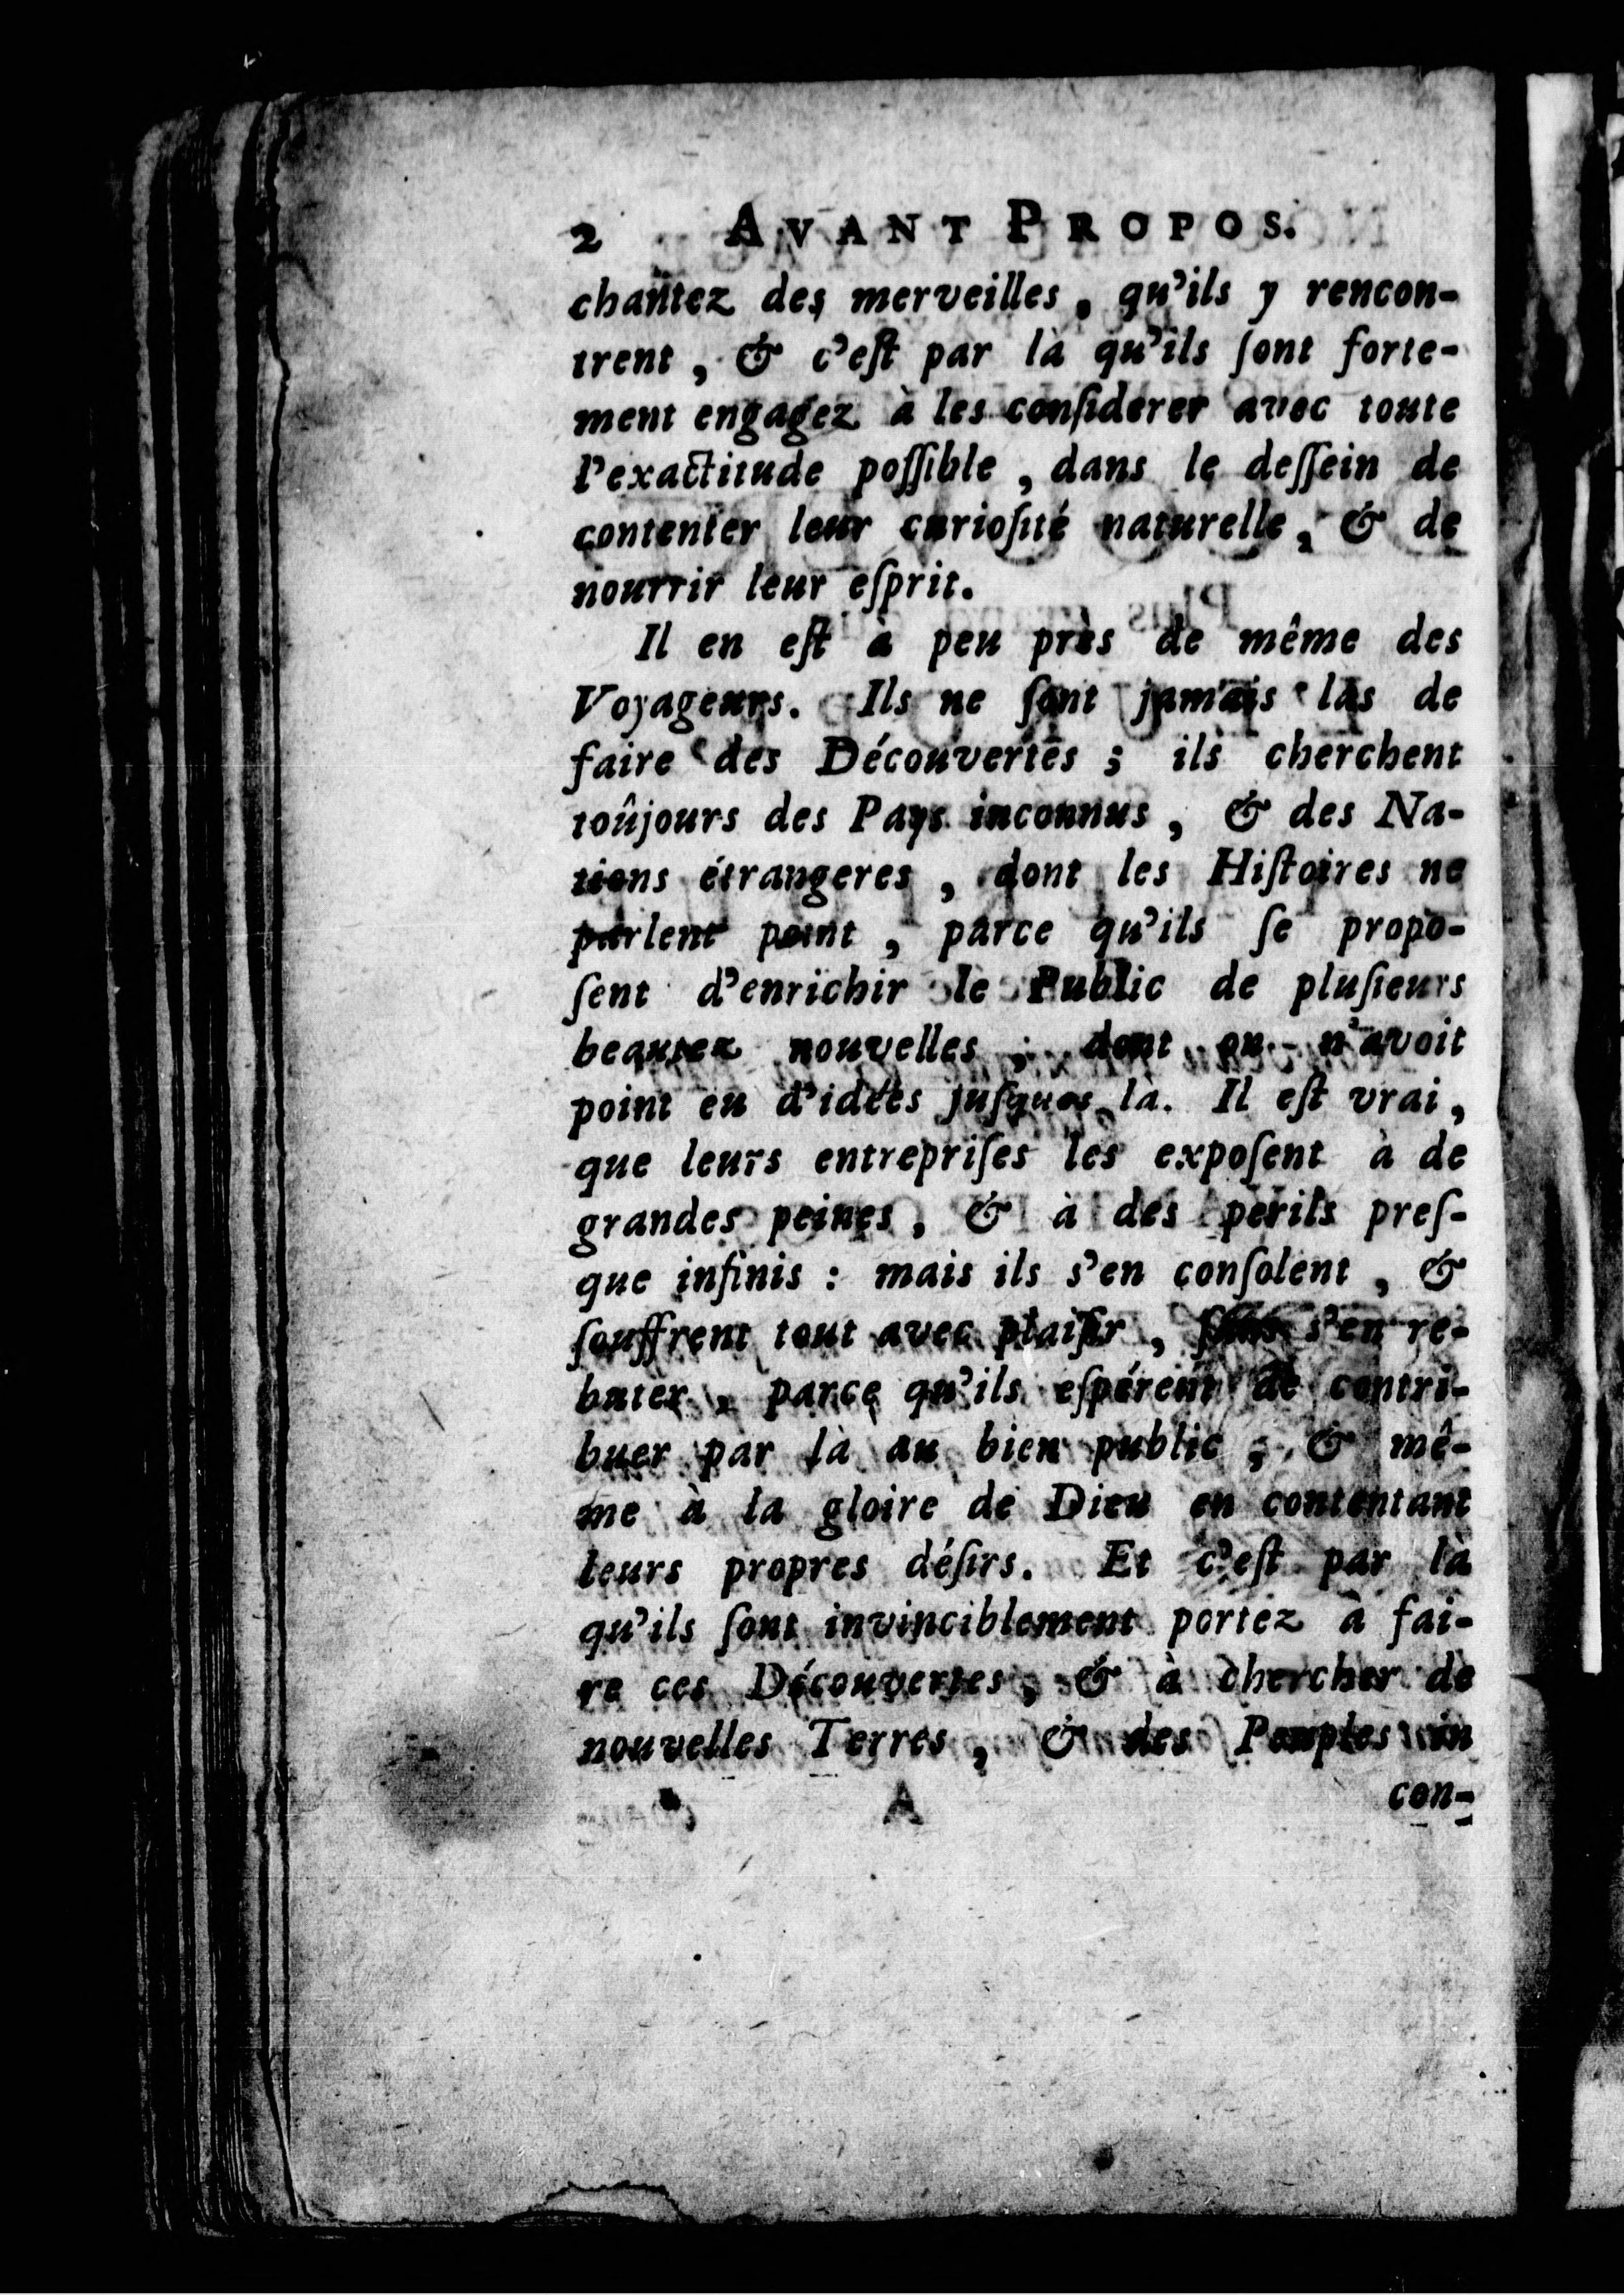 2 AVANT PROPOS.
chantez des merveilles, qu'ils y rencon-
trent, & c'eſt par là qu'ils ſont forte-
ment engagez à les conſiderer avec toute
l'exactitude poſſible, dans le deſſein de
contenter leur curioſité naturelle, & de
nourrir leur eſprit.
Il en eſt à peu près de même des
Voyageurs. Ils ne ſont jamais las de
faire des Découvertes ; ils cherchent
toûjours des Pays inconnus, & des Na-
tions étrangeres, dont les Hiſtoires ne
parlent point, parce qu'ils ſe propo-
ſent d'enrichir le Public de pluſieurs
beautez nouvelles ; dont on n'avoit
point eu d'idées juſques là. Il eſt vrai,
que leurs entrepriſes les expoſent à de
grandes peines, & à des perils preſ-
que infinis : mais ils s'en conſolent, &
ſouffrent tout avec plaiſir, ſans s'en re-
buter, parce qu'ils eſpérent de contri-
buer par là au bien public ; & mê-
me à la gloire de Dieu en contentant
leurs propres déſirs. Et c'eſt par là
qu'ils ſont invinciblement portez à fai-
re ces Découvertes, & à chercher de
nouvelles Terres, & des Peuples in
A con-